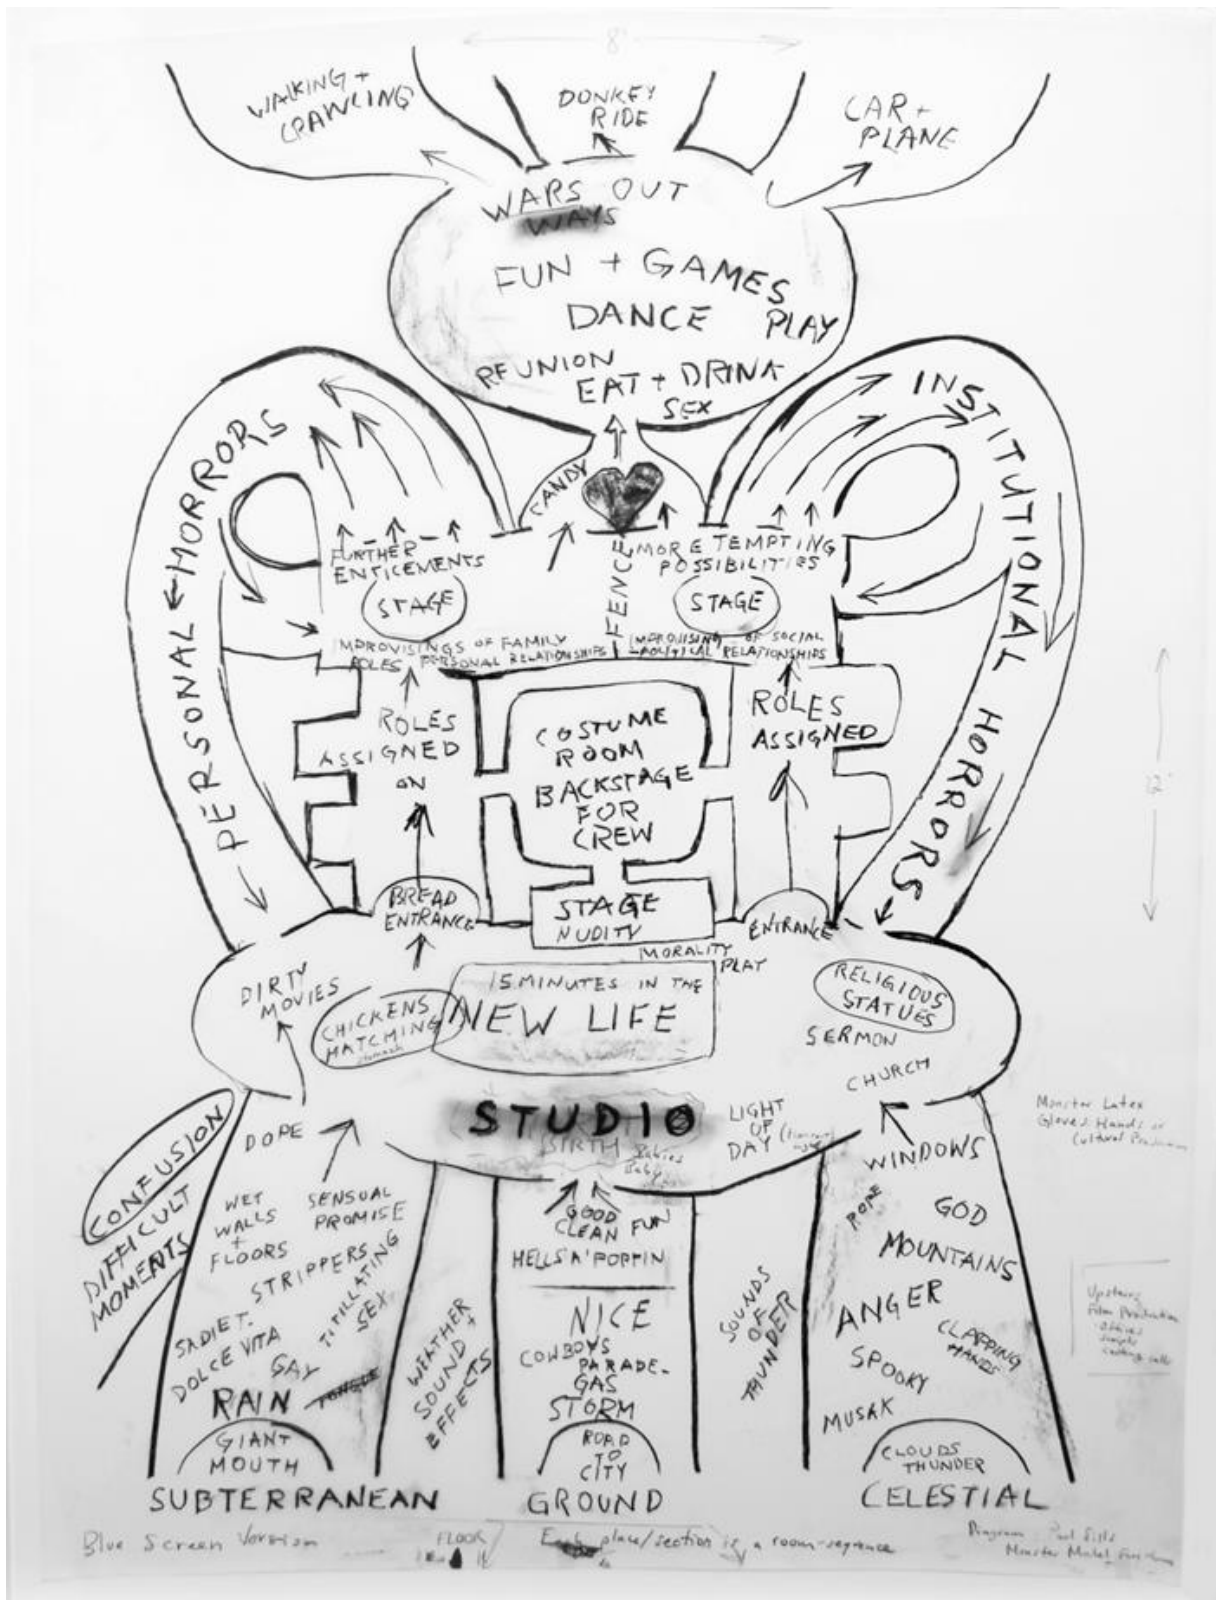 8'
WALKING +
CRAWLING
DONKEY
RIDE
CAR +
PLANE
WARS OUT
WAYS
FUN + GAMES
DANCE PLAY
REUNION
EAT + DRINK
SEX
CANDY
FENCE
PERSONAL HORRORS
INSTITUTIONAL HORRORS
FURTHER
ENTICEMENTS
STAGE
IMPROVISINGS OF FAMILY
ROLES PERSONAL RELATIONSHIPS
MORE TEMPTING
POSSIBILITIES
STAGE
IMPROVISING OF SOCIAL
POLITICAL RELATIONSHIPS
ROLES
ASSIGNED
ON
COSTUME
ROOM
BACKSTAGE
FOR
CREW
ROLES
ASSIGNED
12'
BREAD
ENTRANCE
STAGE
NUDITY
ENTRANCE
MORALITY
PLAY
DIRTY
MOVIES
CHICKENS
HATCHING
15 MINUTES IN THE
NEW LIFE
RELIGIOUS
STATUES
SERMON
CHURCH
STUDIO
BIRTH Babies
Baby
LIGHT
OF
DAY
Monster Latex
Gloves Hands
Cultural
CONFUSION
DIFFICULT
MOMENTS
DOPE
WET
WALLS
+
FLOORS
SENSUAL
PROMISE
STRIPPERS
TITILLATING
SEX
SADIE T.
DOLCE VITA
GAY
TONGUE
RAIN
GIANT
MOUTH
SUBTERRANEAN
WEATHER
SOUND +
EFFECTS
GOOD
CLEAN FUN
HELLS A' POPPIN
NICE
COWBOYS
PARADE-
GAS
STORM
ROAD
TO
CITY
GROUND
SOUNDS
OF
THUNDER
WINDOWS
POPE
GOD
MOUNTAINS
ANGER
CLAPPING
HANDS
SPOOKY
MUSAK
CLOUDS
THUNDER
CELESTIAL
Upstairs
Film Production
Offices
Blue Screen Version
FLOOR
Each place/section is a room-sequence
Diagram Paul Sills
Monster Model